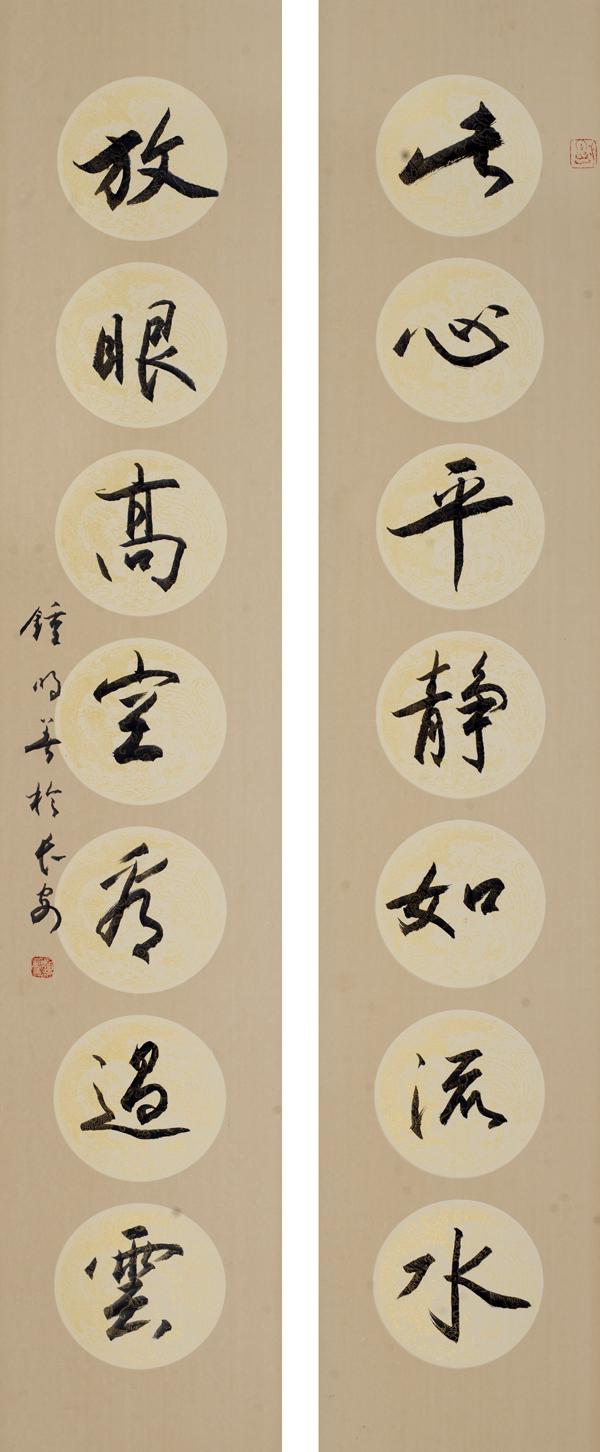 此心平静如流水
放眼高空看過雲
鍾明善於长安